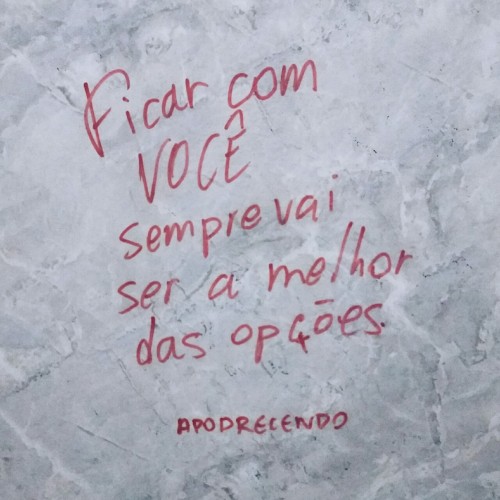 Ficar com
VOCÊ
sempre vai
ser a melhor
das opções.
APODRECENDO